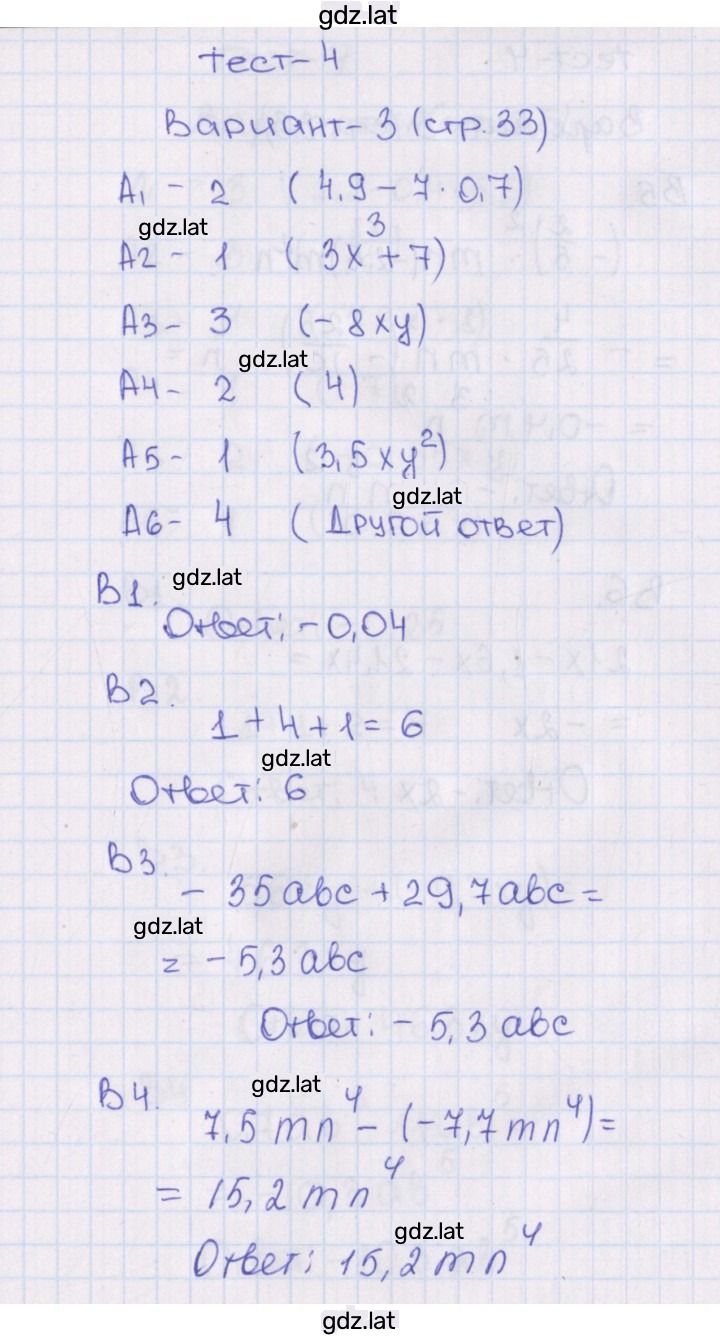 gdz.lat
тест-4
Вариант-3 (стр.33)
А1 - 2 (4,9 - 7 · 0,7)
gdz.lat
А2 - 1 (3x³ + 7)
А3 - 3 (-8xy)
gdz.lat
А4 - 2 (4)
А5 - 1 (3,5xy²)
gdz.lat
А6 - 4 (Другой ответ)
gdz.lat
В1.
Ответ: -0,04
В2.
1 + 4 + 1 = 6
gdz.lat
Ответ: 6
В3.
- 35abc + 29,7abc =
gdz.lat
= - 5,3 abc
Ответ: - 5,3 abc
gdz.lat
В4.
7,5 mn⁴ - (-7,7mn⁴) =
= 15,2 mn⁴
gdz.lat
Ответ: 15,2 mn⁴
gdz.lat